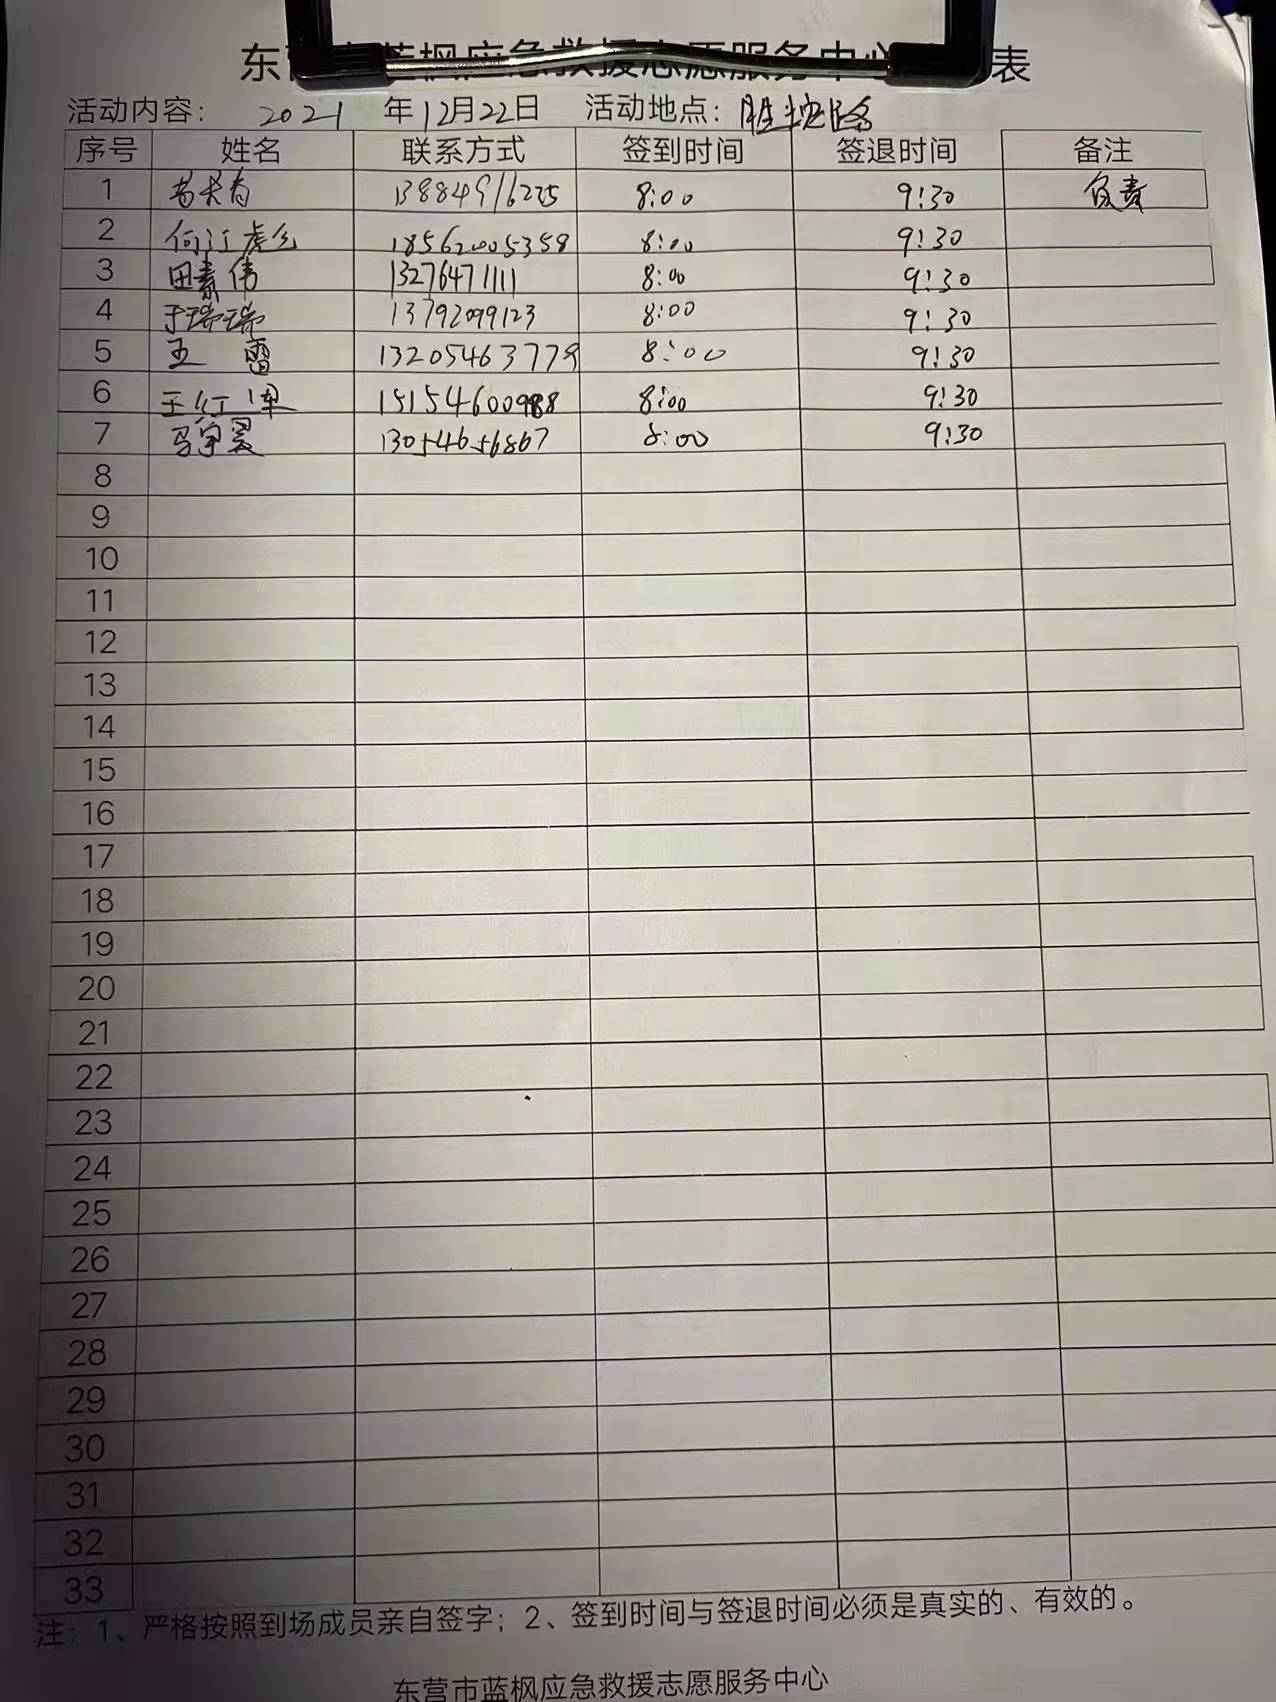 东营市蓝枫应急救援志愿服务中心 表
活动内容： 2021 年12月22日 活动地点：胜 路
序号 姓名 联系方式 签到时间 签退时间 备注
1 8:00 9:30 负责
2 何江虎 18562005358 8:00 9:30
3 田素伟 13276471111 8:00 9:30
4 于瑞瑞 13792099123 8:00 9:30
5 王 雷 13205463779 8:00 9:30
6 王红 15154600988 8:00 9:30
7 马宇昊 13054656867 8:00 9:30
8
9
10
11
12
13
14
15
16
17
18
19
20
21
22
23
24
25
26
27
28
29
30
31
32
33
注：1、严格按照到场成员亲自签字；2、签到时间与签退时间必须是真实的、有效的。
东营市蓝枫应急救援志愿服务中心